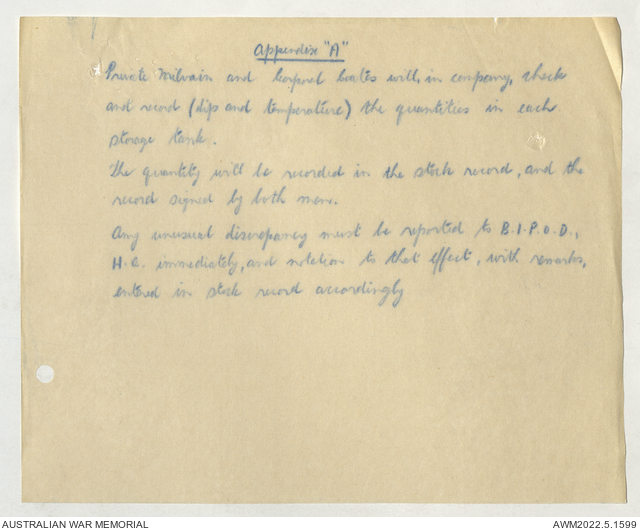 Appendix "A"
Private Milvain and Corporal Coates will, in company, check
and record (dip and temperature) the quantities in each
storage tank.
The quantity will be recorded in the stock record, and the
record signed by both men.
Any unusual discrepancy must be reported to B.I.P.O.D.,
H.Q. immediately, and notation to that effect, with remarks,
entered in stock record accordingly
AUSTRALIAN WAR MEMORIAL
AWM2022.5.1599